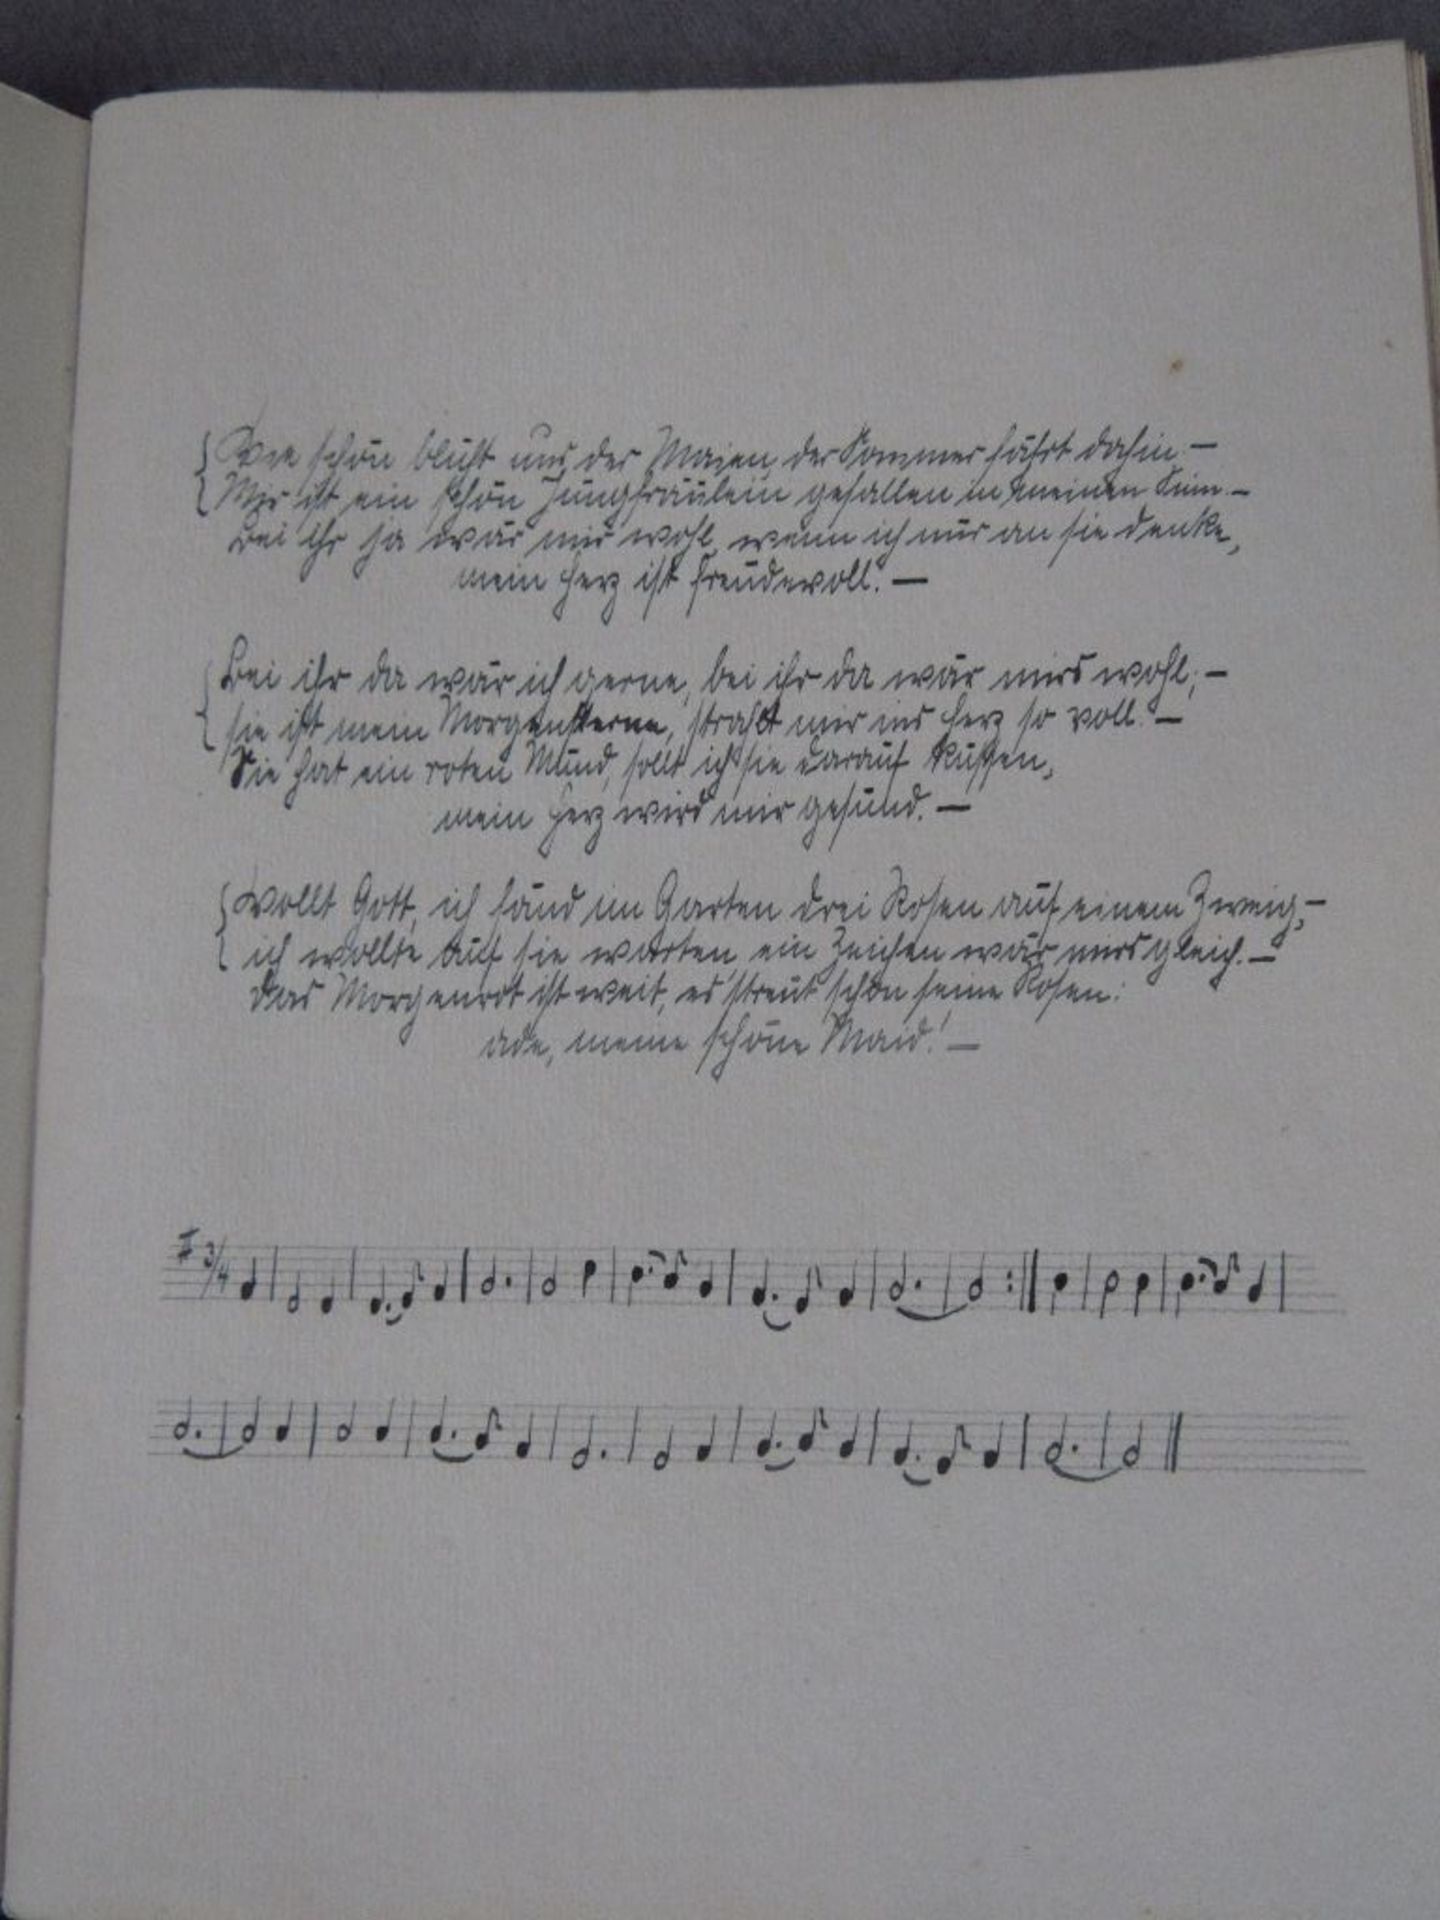 Wie schön blüht uns der Maien, der Sommer fährt dahin. –
Mir ist ein schön Jungfräulein gefallen in meinen Sinn. –
Bei ihr ja wär mir wohl, wenn ich nur an sie denke,
mein Herz ist freudevoll. –
Bei ihr da wär ich gerne, bei ihr da wär mirs wohl; –
sie ist mein Morgensterne, strahlt mir ins Herz so voll. –
Sie hat ein roten Mund, sollt ich sie darauf küssen,
mein Herz wird mir gesund. –
Wollt Gott, ich fänd im Garten drei Rosen auf einem Zweig, –
ich wollte auf sie warten, ein Zeichen wär mirs gleich. –
Das Morgenrot ist weit, es streut schon seine Rosen:
ade, meine schöne Maid! –
3/4